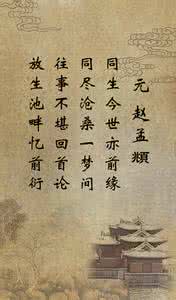 元 赵孟頫
同生今世亦前缘
同尽沧桑一梦间
往事不堪回首论
放生池畔忆前衍